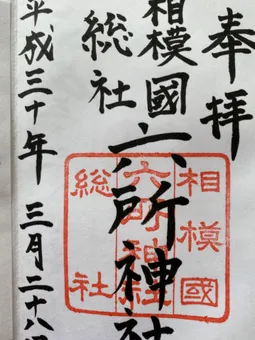 奉拝
相模國
総社
六所神社
平成三十年三月二十八日
相模國
六所神社
総社